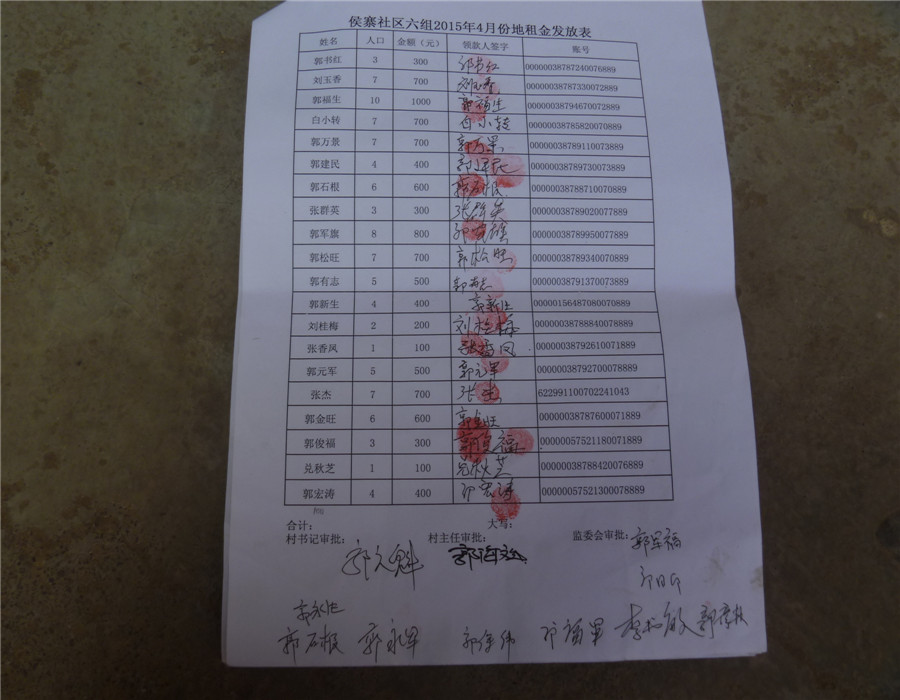 侯寨社区六组2015年4月份地租金发放表
姓名 人口 金额（元） 领款人签字 账号
郭书红 3 300 郭书红 00000038787240076889
刘玉香 7 700 刘玉香 00000038787330072889
郭福生 10 1000 郭福生 00000038794670072889
白小转 7 700 白小转 00000038785820070889
郭万景 7 700 郭万景 00000038789110073889
郭建民 4 400 郭建民 00000038789730073889
郭石根 6 600 郭石根 00000038788710070889
张群英 3 300 张群英 00000038789020077889
郭军旗 8 800 郭军旗 00000038789950077889
郭松旺 7 700 郭松旺 00000038789340070889
郭有志 5 500 郭有志 00000038791370073889
郭新生 4 400 郭新生 00000156487080070889
刘桂梅 2 200 刘桂梅 00000038788840078889
张香凤 1 100 张香凤 00000038792610071889
郭元军 5 500 郭元军 00000038792700078889
张杰 7 700 张杰 622991100702241043
郭金旺 6 600 郭金旺 00000038787600071889
郭俊福 3 300 郭俊福 00000057521180071889
兑秋芝 1 100 兑秋芝 00000038788420076889
郭宏涛 4 400 郭宏涛 00000057521300078889
合计： 大写：
村书记审批： 村主任审批： 监委会审批：郭军福
郭久魁 郭海
郭永旺
郭石根 郭永军 郭保伟 郭福果 李松敏